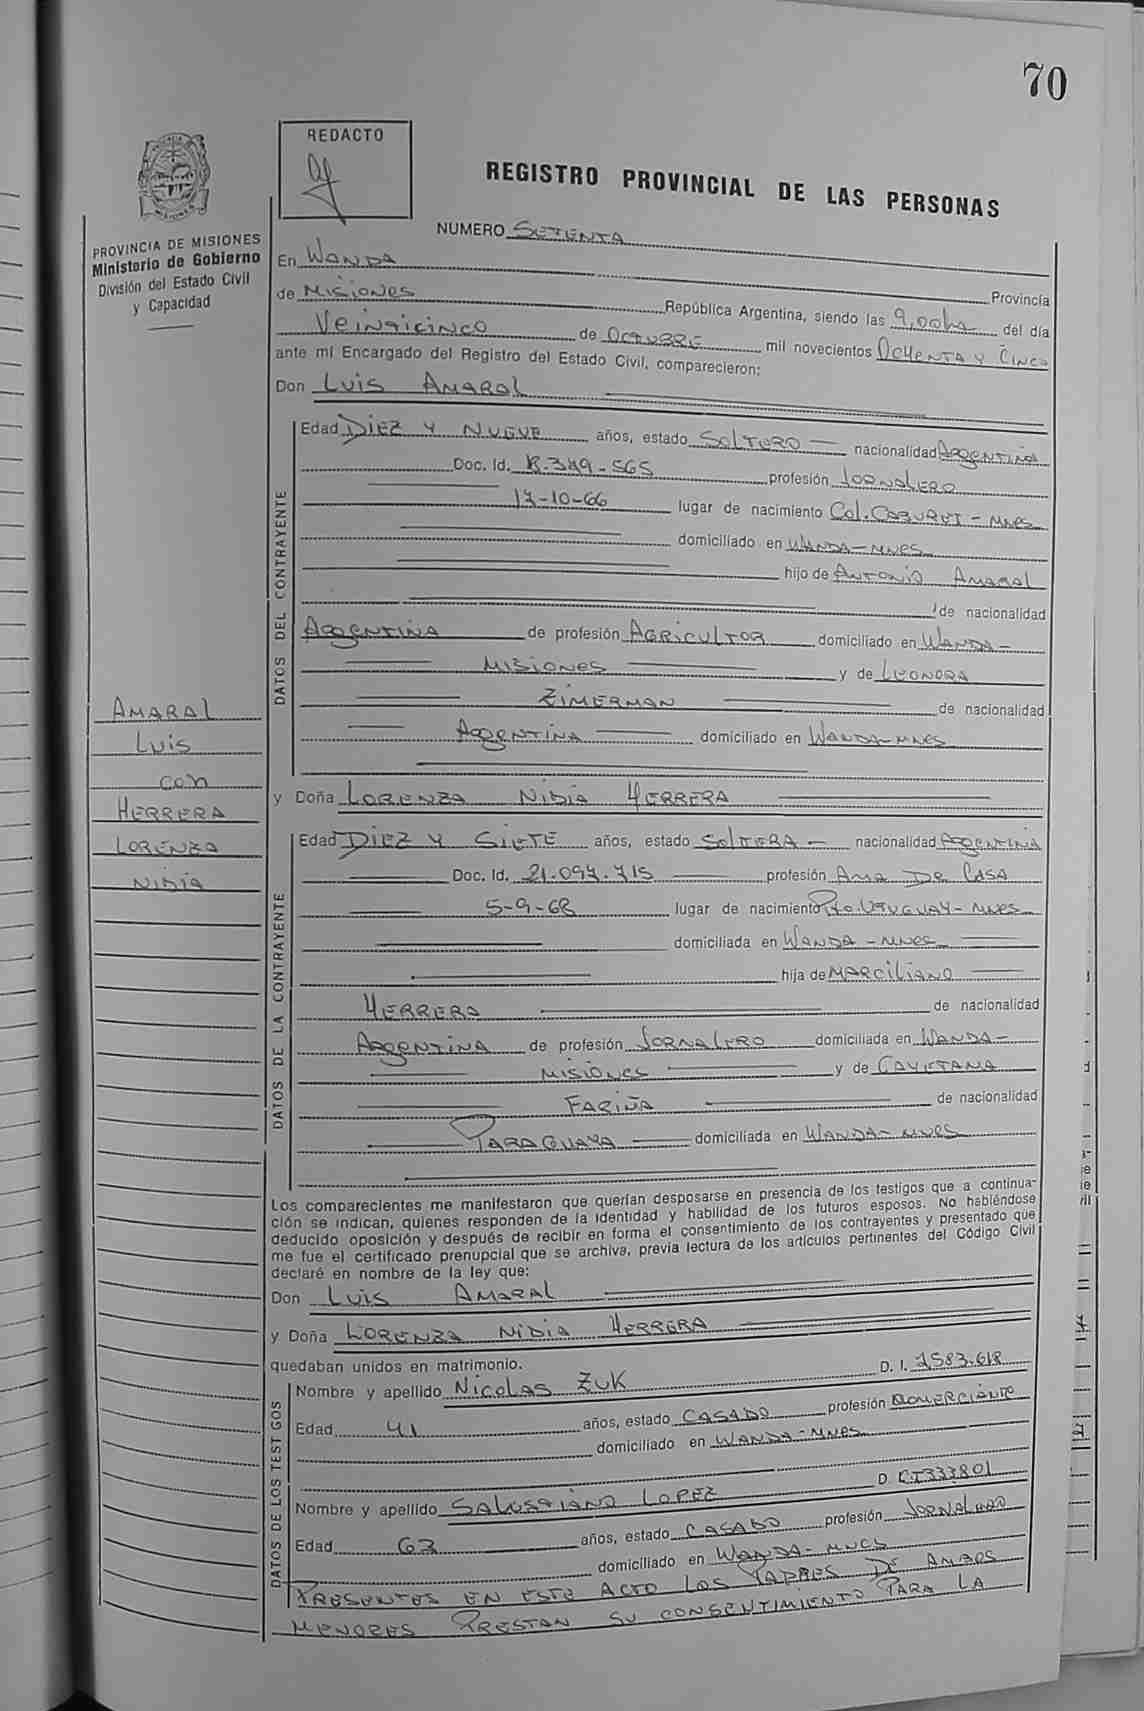 70
REDACTO
REGISTRO PROVINCIAL DE LAS PERSONAS
PROVINCIA DE MISIONES
Ministerio de Gobierno
División del Estado Civil
y Capacidad
NUMERO SETENTA
En WANDA Provincia
de MISIONES República Argentina, siendo las 9,00hs del día
VEINTICINCO de OCTUBRE mil novecientos OCHENTA Y CINCO
ante mí Encargado del Registro del Estado Civil, comparecieron:
Don LUIS AMARAL
DATOS DEL CONTRAYENTE
Edad DIEZ Y NUEVE años, estado SOLTERO nacionalidad ARGENTINA
Doc. Id. profesión JORNALERO
17-10-66 lugar de nacimiento Col. CABUREI - MNES
domiciliado en WANDA - MNES
hijo de ANTONIO AMARAL
de nacionalidad
ARGENTINA de profesión AGRICULTOR domiciliado en WANDA -
MISIONES y de LEONORA
ZIMERMAN de nacionalidad
ARGENTINA domiciliado en WANDA - MNES
AMARAL
LUIS
con
HERRERA
LORENZA
NIDIA
y Doña LORENZA NIDIA HERRERA
DATOS DE LA CONTRAYENTE
Edad DIEZ Y SIETE años, estado SOLTERA - nacionalidad ARGENTINA
Doc. Id. 21.094.715 profesión AMA DE CASA
5-9-68 lugar de nacimiento Pto. URUGUAY - MNES
domiciliada en WANDA - MNES
hija de MARCILIANO
HERRERA de nacionalidad
ARGENTINA de profesión JORNALERO domiciliada en WANDA -
MISIONES y de CAYETANA
FARIÑA de nacionalidad
PARAGUAYA domiciliada en WANDA - MNES
Los comparecientes me manifestaron que querían desposarse en presencia de los testigos que a continua-
ción se indican, quienes responden de la identidad y habilidad de los futuros esposos. No habiéndose
deducido oposición y después de recibir en forma el consentimiento de los contrayentes y presentado que
me fue el certificado prenupcial que se archiva, previa lectura de los artículos pertinentes del Código Civil
declaré en nombre de la ley que:
Don LUIS AMARAL
y Doña LORENZA NIDIA HERRERA
quedaban unidos en matrimonio.
DATOS DE LOS TESTIGOS
Nombre y apellido NICOLAS ZUK D. I. 7583.618
Edad 41 años, estado CASADO profesión COMERCIANTE
domiciliado en WANDA - MNES
Nombre y apellido SALUSTIANO LOPEZ D. C.I 333801
Edad 63 años, estado CASADO profesión JORNALERO
domiciliado en WANDA - MNES
PRESENTES EN ESTE ACTO LOS PADRES DE AMBOS
MENORES PRESTAN SU CONSENTIMIENTO PARA LA